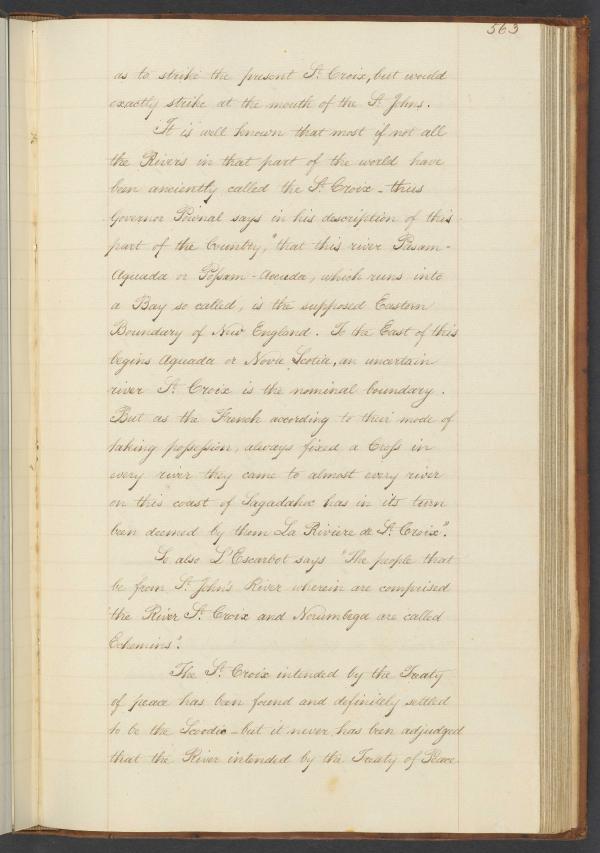 563
as to strike the present St. Croix, but would
exactly strike at the mouth of the St. Johns.
It is well known that most if not all
the Rivers in that part of the world have
been anciently called the St. Croix - thus
Governor Pownal says in his description of this
part of the Country, "that this river Pasam-
aquada or Possam-Accada, which runs into
a Bay so called, is the supposed Eastern
Boundary of New England. To the East of this
begins Aquada or Nova Scotia, an uncertain
river St. Croix is the nominal boundary.
But as the French according to their mode of
taking possession, always fixed a Cross in
every river they came to almost every river
on this coast of Sagadahoc has in its turn
been deemed by them La Riviere de St. Croix".
So also L'Escarbot says "The people that
be from St. John's River wherein are comprised
the River St. Croix and Norumbega are called
Echemins".
The St. Croix intended by the Treaty
of peace has been found and definitely settled
to be the Scoodic - but it never has been adjudged
that the River intended by the Treaty of Peace